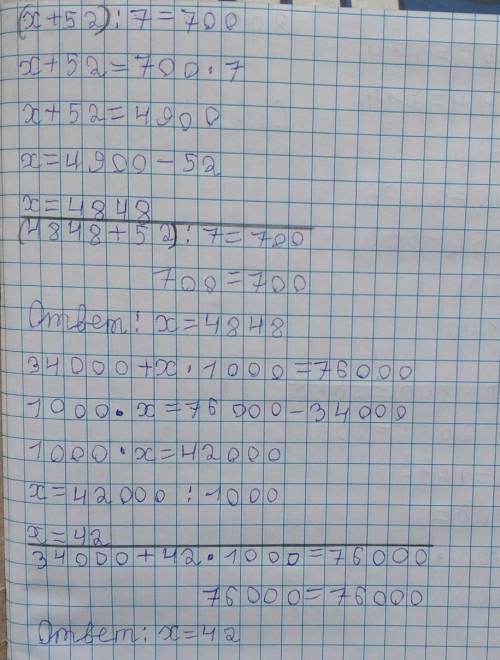 (x+52):7=700
x+52=700·7
x+52=4900
x=4900-52
x=4848
(4848+52):7=700
700=700
Ответ: x=4848
34000+x·1000=76000
1000·x=76000-34000
1000·x=42000
x=42000:1000
x=42
34000+42·1000=76000
76000=76000
Ответ: x=42